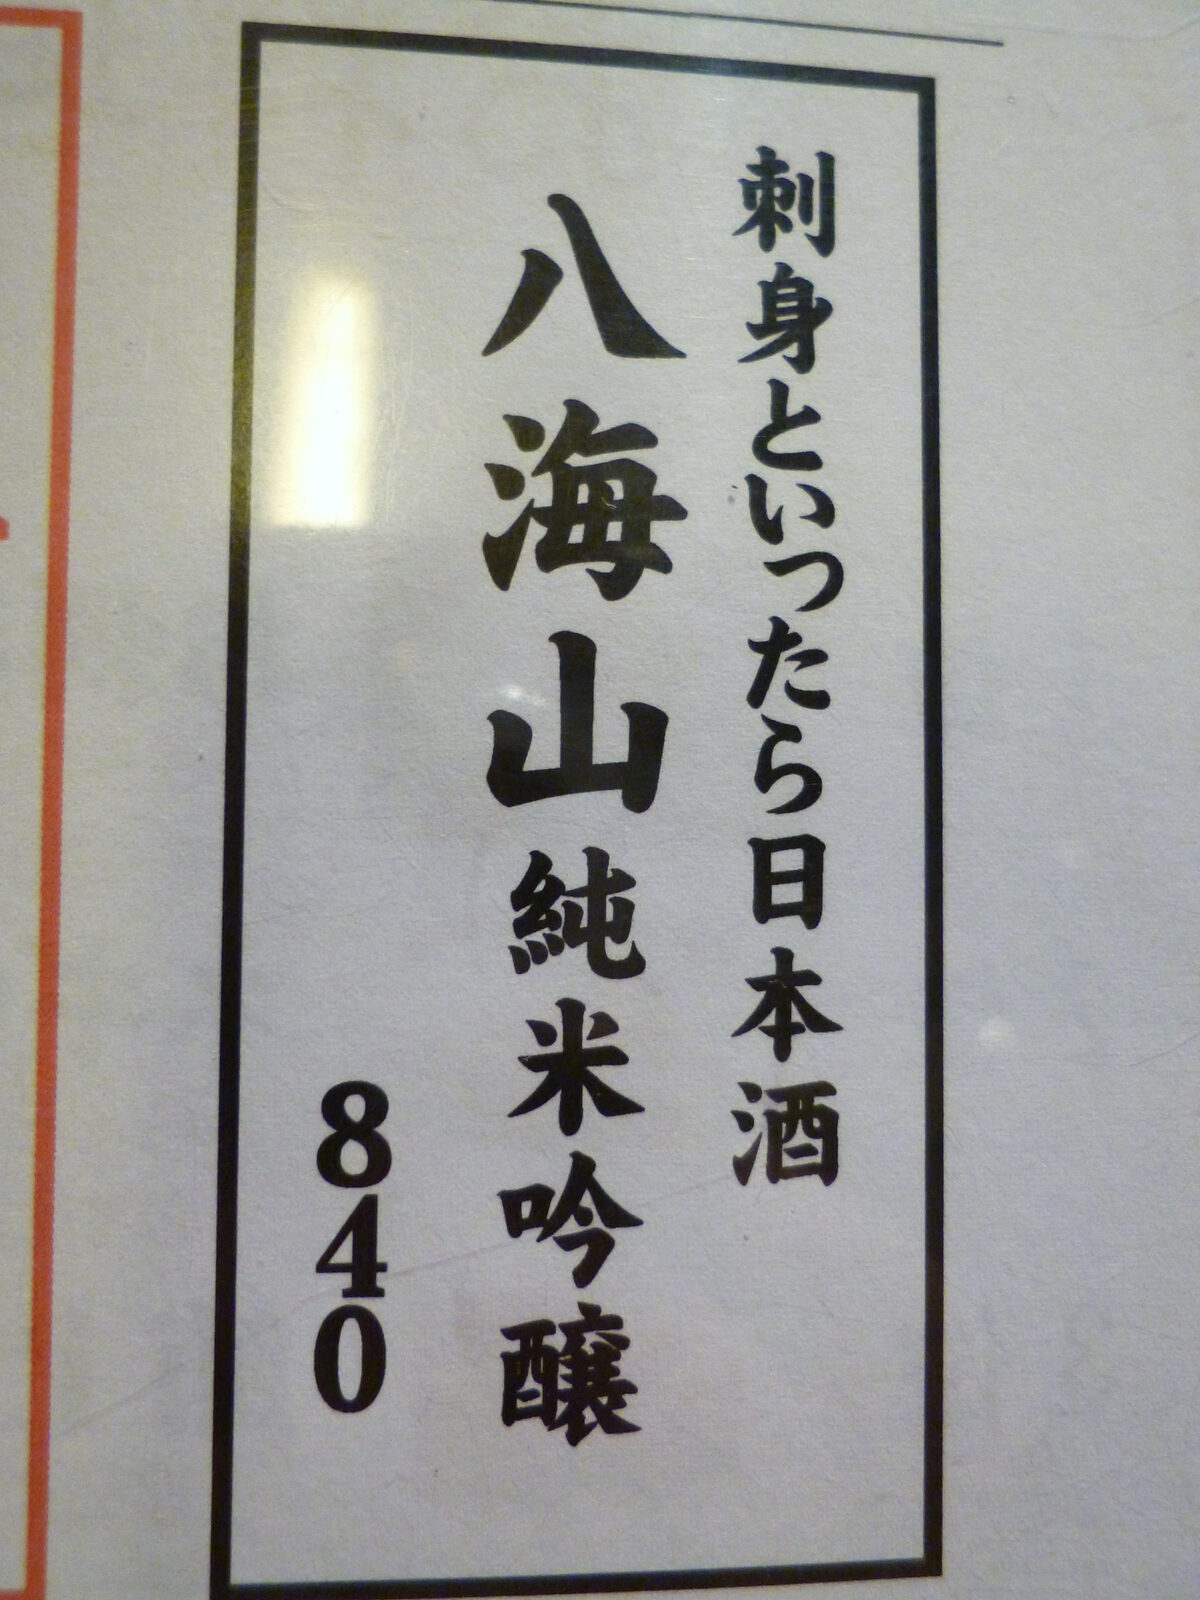 刺身といったら日本酒
八海山純米吟醸
840